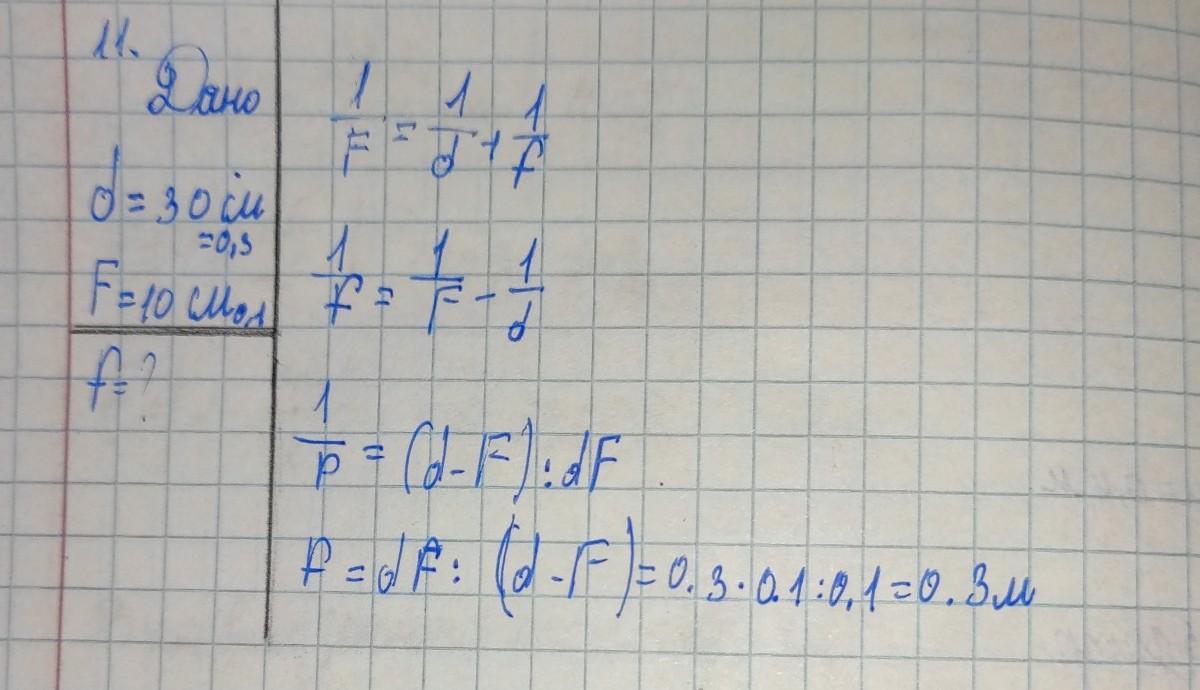 11.
Дано
d = 30 см
= 0,3
F = 10 см 0,1
f = ?
1/F = 1/d + 1/f
1/f = 1/F - 1/d
1/f = (d - F) : dF
f = dF : (d - F) = 0.3 · 0.1 : 0,1 = 0.3 м